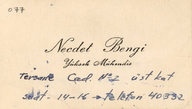 077
Necdet Bengi
Yüksek Mühendis
Tersane Cad. No 2 üst kat
saat - 14-16 telefon 40332